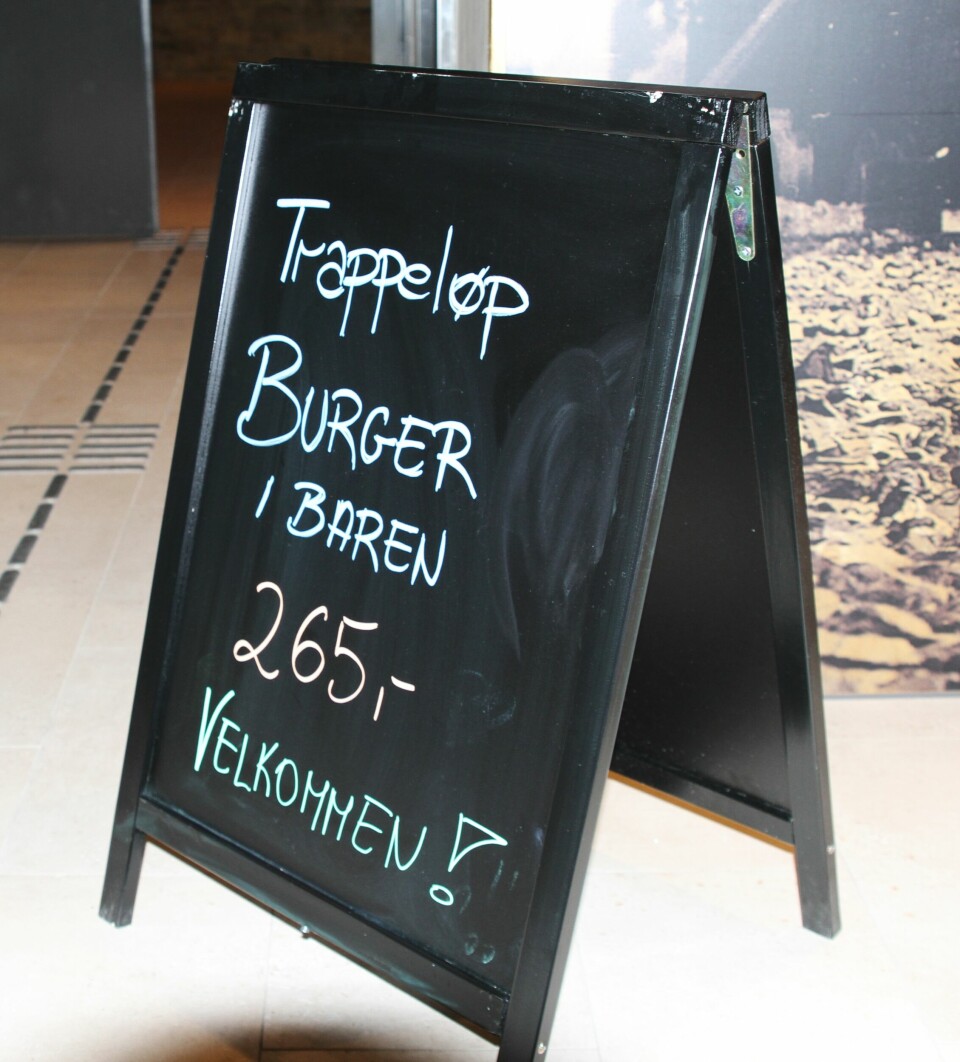 Trappeløp
BURGER
I BAREN
265,-
VELKOMMEN!